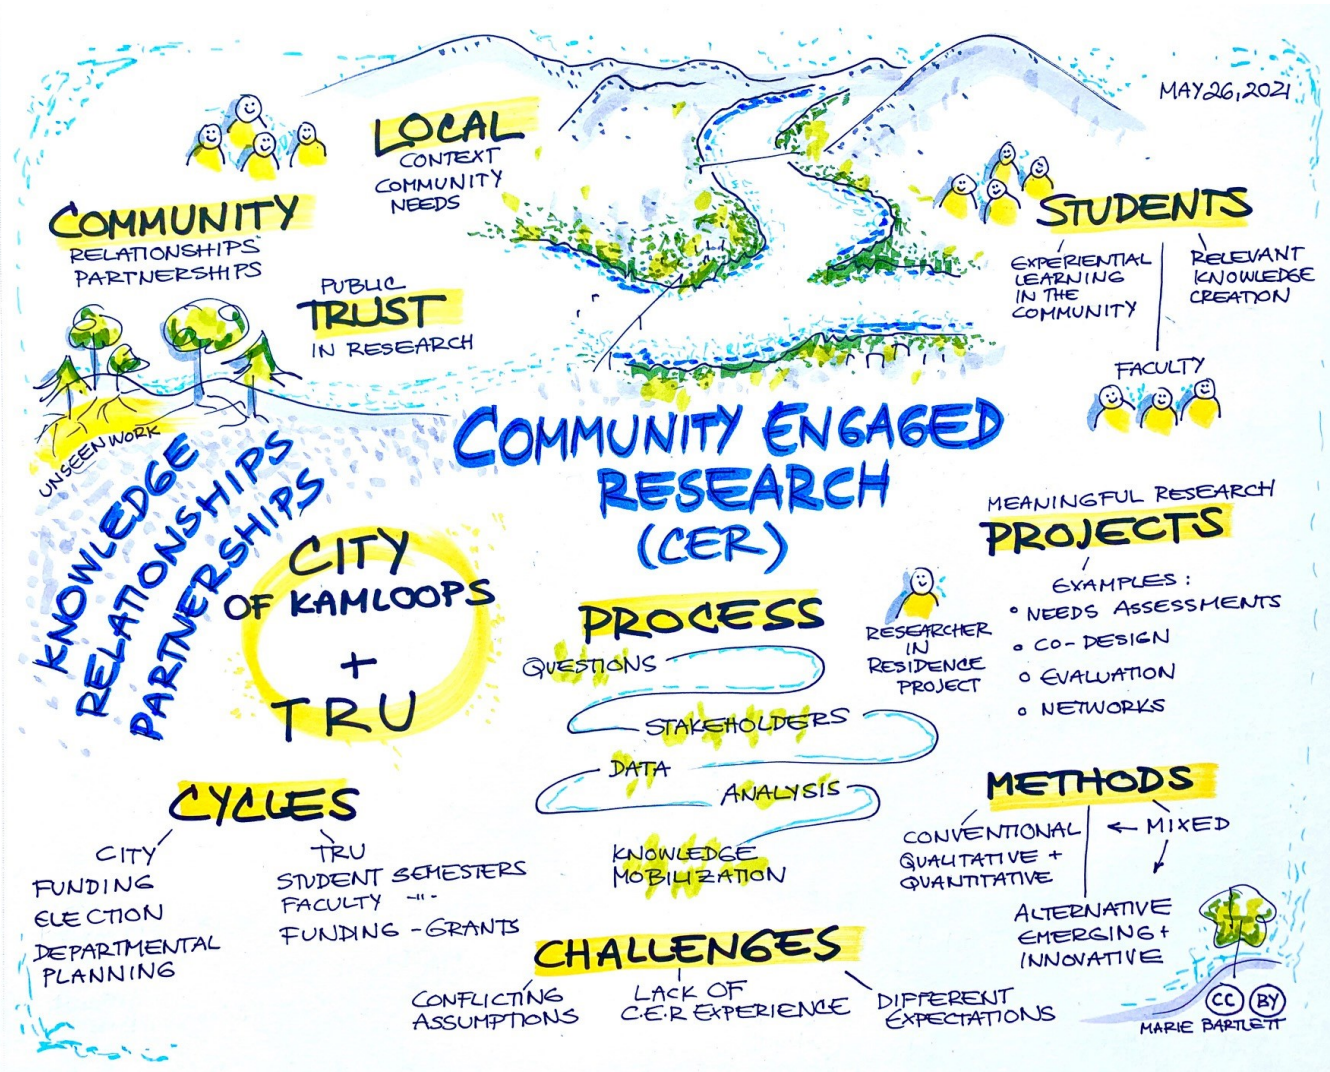 MAY 26, 2021
LOCAL
CONTEXT
COMMUNITY
NEEDS
COMMUNITY
RELATIONSHIPS
PARTNERSHIPS
PUBLIC
TRUST
IN RESEARCH
STUDENTS
EXPERIENTIAL
LEARNING
IN THE
COMMUNITY
RELEVANT
KNOWLEDGE
CREATION
FACULTY
UNSEEN WORK
KNOWLEDGE
RELATIONSHIPS
PARTNERSHIPS
COMMUNITY ENGAGED
RESEARCH
(CER)
CITY
OF KAMLOOPS
+
TRU
MEANINGFUL RESEARCH
PROJECTS
EXAMPLES:
• NEEDS ASSESSMENTS
• CO-DESIGN
• EVALUATION
• NETWORKS
RESEARCHER
IN
RESIDENCE
PROJECT
PROCESS
QUESTIONS
STAKEHOLDERS
DATA
ANALYSIS
KNOWLEDGE
MOBILIZATION
CYCLES
CITY
FUNDING
ELECTION
DEPARTMENTAL
PLANNING
TRU
STUDENT SEMESTERS
FACULTY -"-
FUNDING - GRANTS
METHODS
CONVENTIONAL
QUALITATIVE +
QUANTITATIVE
← MIXED
ALTERNATIVE
EMERGING +
INNOVATIVE
CHALLENGES
CONFLICTING
ASSUMPTIONS
LACK OF
C.E.R EXPERIENCE
DIFFERENT
EXPECTATIONS
CC BY
MARIE BARTLETT